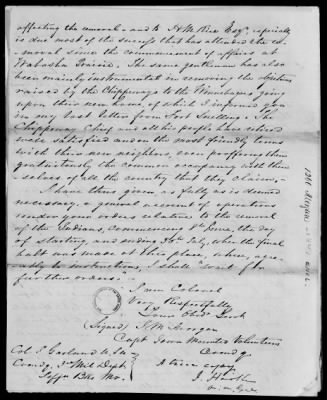 affecting the removal, and to H. M. Rice Esqr, especially
is due most of the success that has attended the re-
moval since the commencement of affairs at
Wabasha Prairie. The same gentleman has also
been mainly instrumental in removing the objections
raised by the Chippeways to the Winnebagoes going
upon their new home, of which I informed you
in my last letter from Fort Snelling. The
Chippeway Chief and all his people have retired
well satisfied and on the most friendly terms
with their new neighbors, even proffering them
gratuitously the common occupancy with them
selves of all the country that they claim.
I have thus given as fully as is deemed
necessary, a general account of operations
under your orders relative to the removal
of the Indians, Commencing 8th June, the day
of starting, and ending 30th July, when the final
halt was made at this place, where, accor-
ding to instructions, I shall wait for
further orders.
I am Colonel
Very Respectfully
Your Obdt Servt
(Signed) J. M. Morgan
Capt Iowa Mounted Volunteers
Comdg
Col J Garland U.S.A.
Comdg 3d Mil Dept
Jeffn Bks Mo.
A true copy